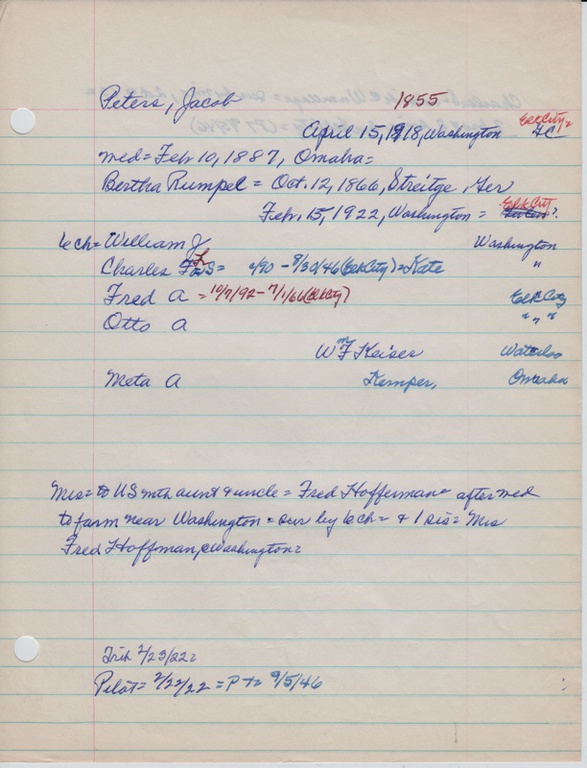 Peters, Jacob 1855
April 15, 1918, Washington Elk City= FC
med= Feb 10, 1887, Omaha=
Bertha Rumpel = Oct. 12, 1866, Streitge, Ger
Feb. 15, 1922, Washington = Elk City ?
6 ch= William J Washington
Charles F S= 2/90 - 8/30/46 (Elk City)=Kate "
Fred A = 10/7/92- 7/1/66 (Elk City) Elk City
Otto A " " "
Wm F Keiser Waterloo
Meta A Kemper, Omaha
Mrs= to US with aunt & uncle = Fred Hofferman= after med
to farm near Washington = sur by 6 ch= & 1 sis= Mrs
Fred Hoffman, Washington=
Trib 2/23/22=
Pilot= 2/22/22 = P T= 9/5/46